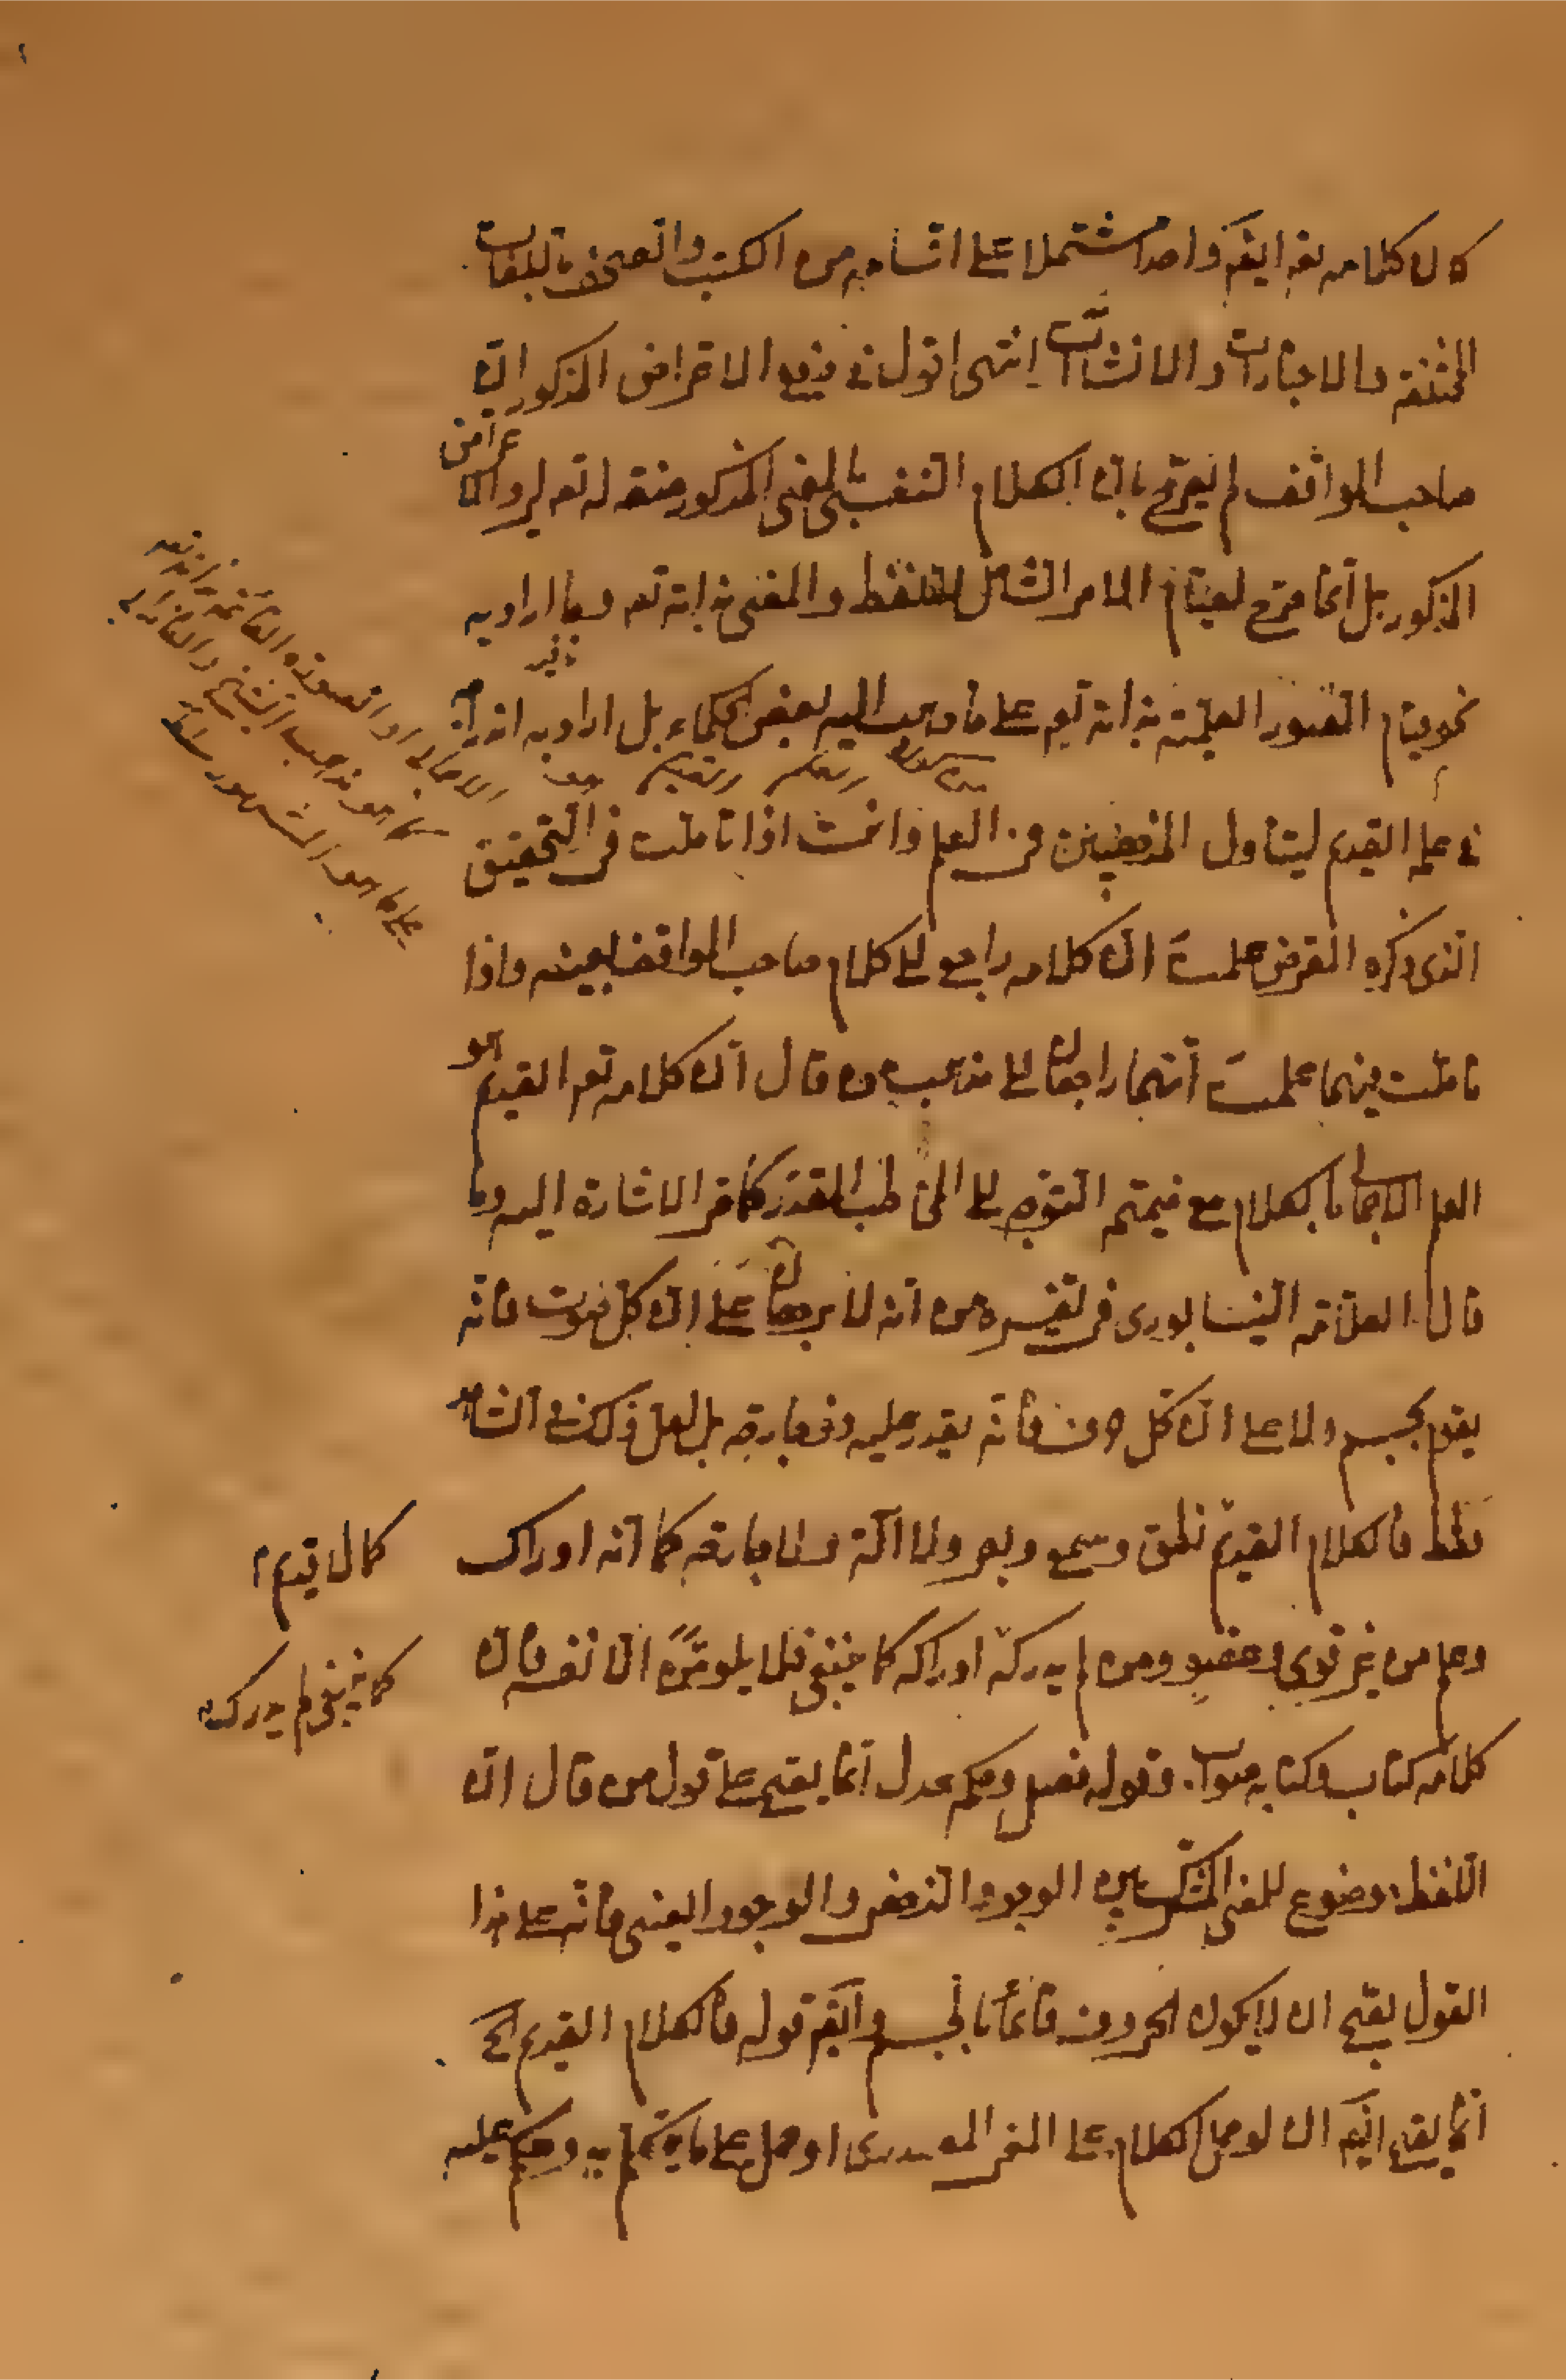 كان كلامه تعه ايضا واحدا مشتملا على اقسامه من الكتب والصحف باللغات
المختلفة والاخبارات والانشاآت انتهى اقول فى دفع الاعتراض المذكور انّ
صاحب المواقف لم يصرّح بان الكلام النفسى بالمعنى المذكور صفة له تعه ليرد الاعتراض
المذكور بل انما صرّح بقيام الامر الشامل للفظ والمعنى بذاته تعه وما اراد به
نحو قيام الصور العلمية بذاته تعه على ما ذهب اليه بعض الحكماء بل اراد به انه
فى علمه القديم ليتناول المذهبين فى العلم وانت اذا تاملت فى التحقيق
الذى ذكره المعترض علمت ان كلامه راجع الى كلام صاحب المواقف بعينه واذا
تاملت فيهما علمت انهما راجعان الى مذهب من قال ان كلامه تعه القديم هو
العلم الاجمالى بالكلام مع ضميمة التوجه الى المخاطب المقدر كما مر الاشارة اليه وما
قال العلامة النيسابورى فى تفسيره من انه لا برهان على ان كل صوت فانه
يقوم بجسم ولا على ان كل حرف فانه يقدر عليه ذو جارحة بل لعل ذلك فى الشاهد
فقط فالكلام القديم نطق وسمع وبصر ولا آلة ولا جارحة كما انه ادراك
وعلم من غير قوى وعضو ومن لم يدركه ادراكه كما ينبغى فلا يلومنّ الا نفسه فان
كلامه كتاب وكتابه صواب. وقوله فصل وحكمه عدل انما يصح على قول من قال ان
اللفظ موضوع للمعنى المشترك بين الوجود الذهنى والوجود العينى فانه على هذا
القول يصح ان لا يكون الحروف قائما بالجسم وايضا قوله فالكلام القديم الخ
انما يصح ايضا ان لو حمل الكلام على المعنى المصدرى او حمل على ما يتكلم به وحكم عليه
الاجمالى او الصورة القائمة بذاته تعه
كما هو مذهب الشيخ والفارابى
على ما هو المشهور
كمال قديم
كما ينبغى لم يدركه